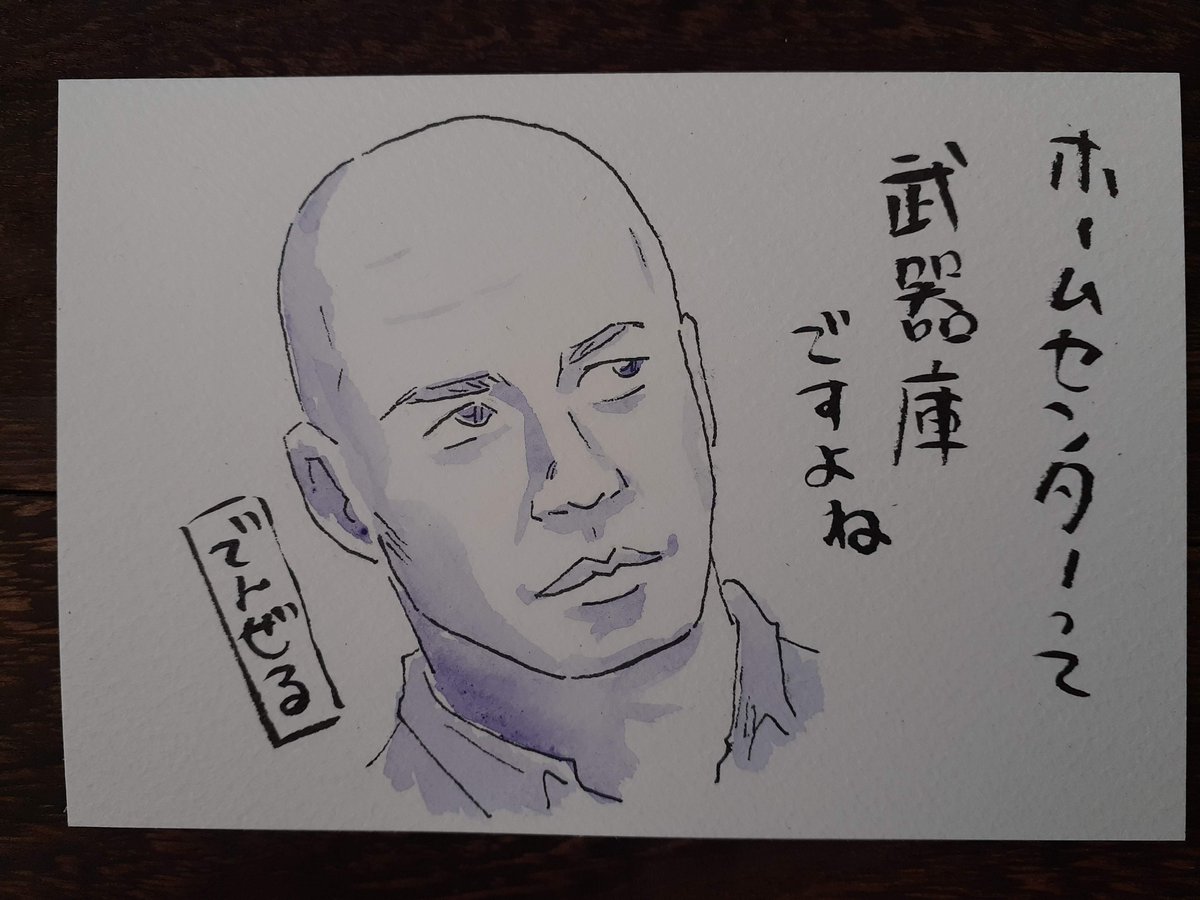 ホームセンターって
武器庫
ごすよね
でんぜる